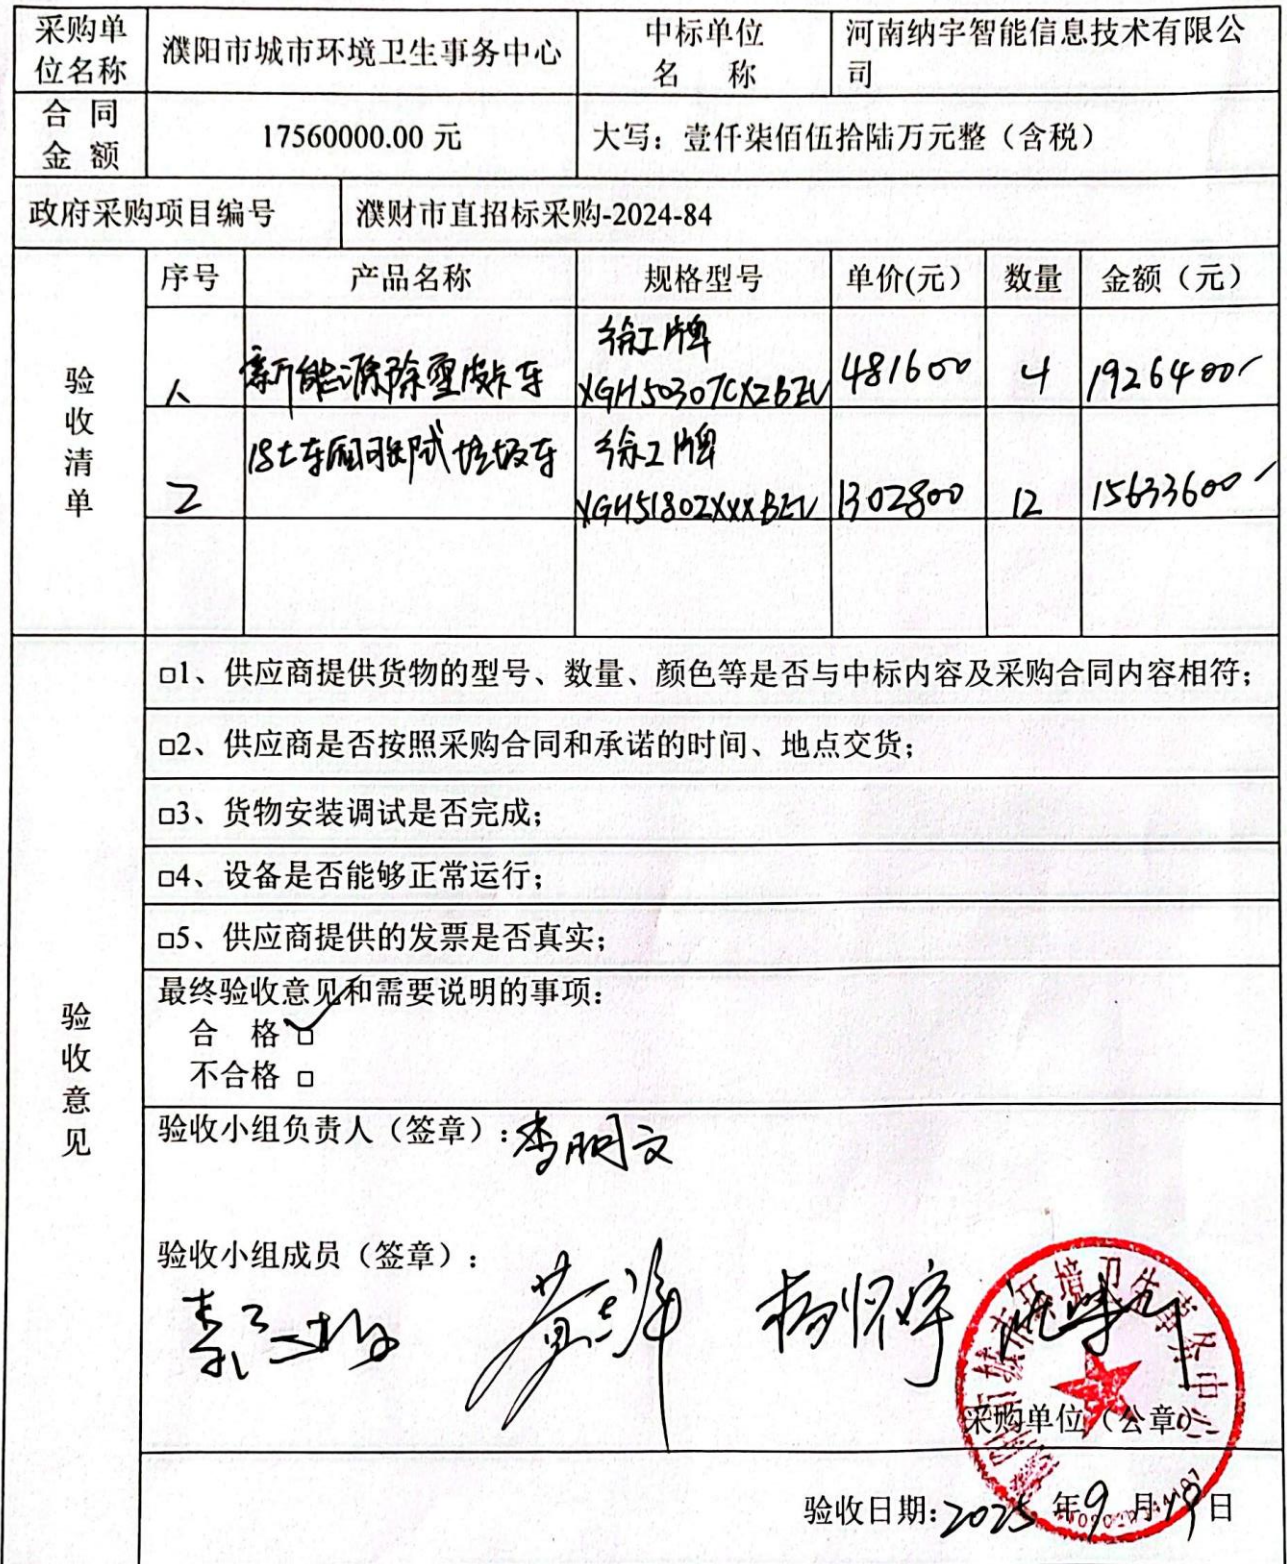 采购单
位名称
濮阳市城市环境卫生事务中心
中标单位
名 称
河南纳宇智能信息技术有限公
司
合 同
金 额
17560000.00 元
大写：壹仟柒佰伍拾陆万元整（含税）
政府采购项目编号
濮财市直招标采购-2024-84
验收清单
序号 产品名称 规格型号 单价(元) 数量 金额（元）
新能源除雪皮卡车
徐工牌
XGH5030TCXZBEV
481600
4
1926400
2
18吨车厢可卸式垃圾车
徐工牌
XGH5180ZXXXBEV
1302800
12
15633600
验收意见
□1、供应商提供货物的型号、数量、颜色等是否与中标内容及采购合同内容相符；
□2、供应商是否按照采购合同和承诺的时间、地点交货；
□3、货物安装调试是否完成；
□4、设备是否能够正常运行；
□5、供应商提供的发票是否真实；
最终验收意见和需要说明的事项：
合 格 □
不合格 □
验收小组负责人（签章）：李朋文
验收小组成员（签章）：
杨怀宇
采购单位（公章）
验收日期:2025年9月19日